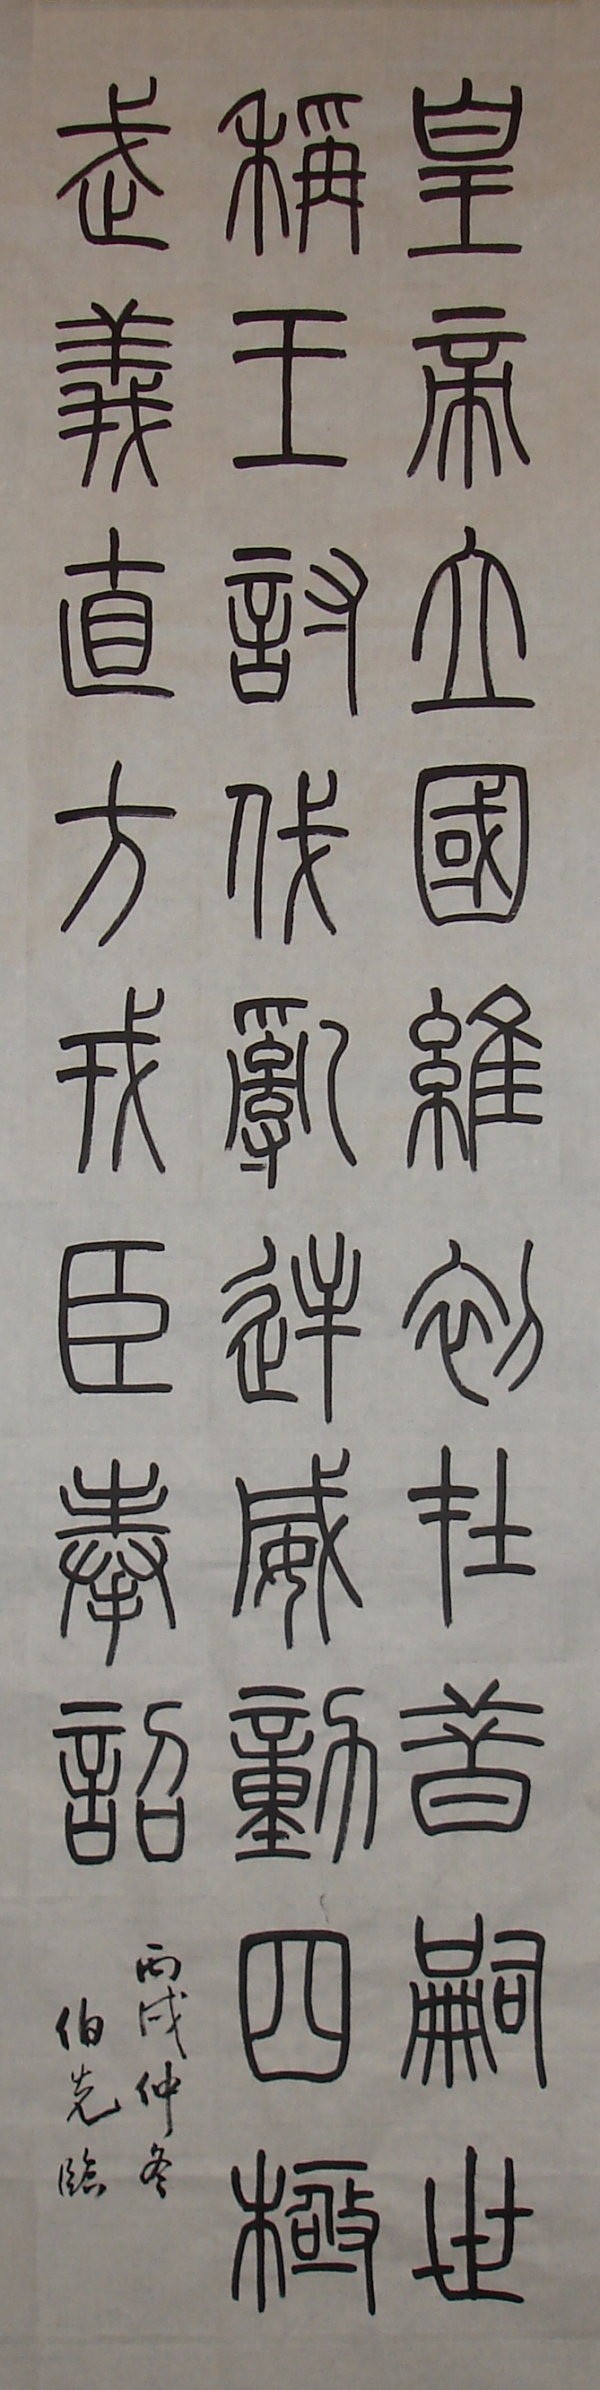 皇帝立國維初在昔嗣世
稱王討伐亂逆威動四極
武義直方戎臣奉詔
丙戌仲冬
伯克臨